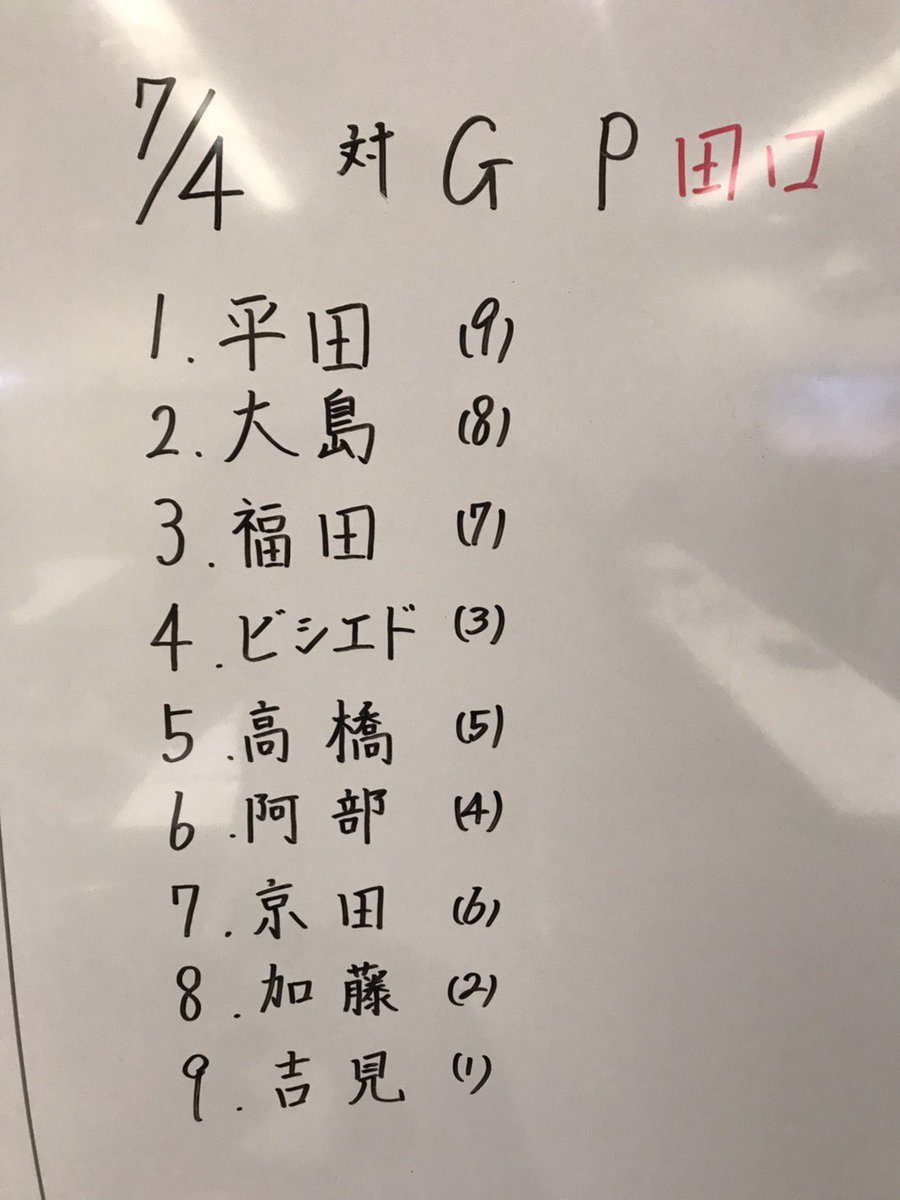 7/4 対 G P 田口
1. 平田 (9)
2. 大島 (8)
3. 福田 (7)
4. ビシエド (3)
5. 高橋 (5)
6. 阿部 (4)
7. 京田 (6)
8. 加藤 (2)
9. 吉見 (1)